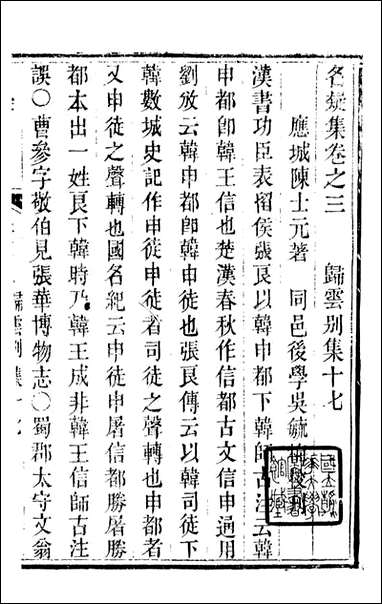 名疑集卷之三　歸雲别集十七
應城陳士元著　同邑後學吳毓
漢書功臣表留侯張良以韓申都下韓師古注云韓
申都卽韓王信也楚漢春秋作信都古文信申通用
劉攽云韓申都卽韓申徒也張良傳云以韓司徒下
韓數城史記作申徒申徒者司徒之聲轉也申都者
又申徒之聲轉也國名紀云申徒申屠信都勝屠勝
都本出一姓良下韓時乃韓王成非韓王信師古注
誤〇曹參字敬伯見張華博物志〇蜀郡太守文翁
歸雲别集十七